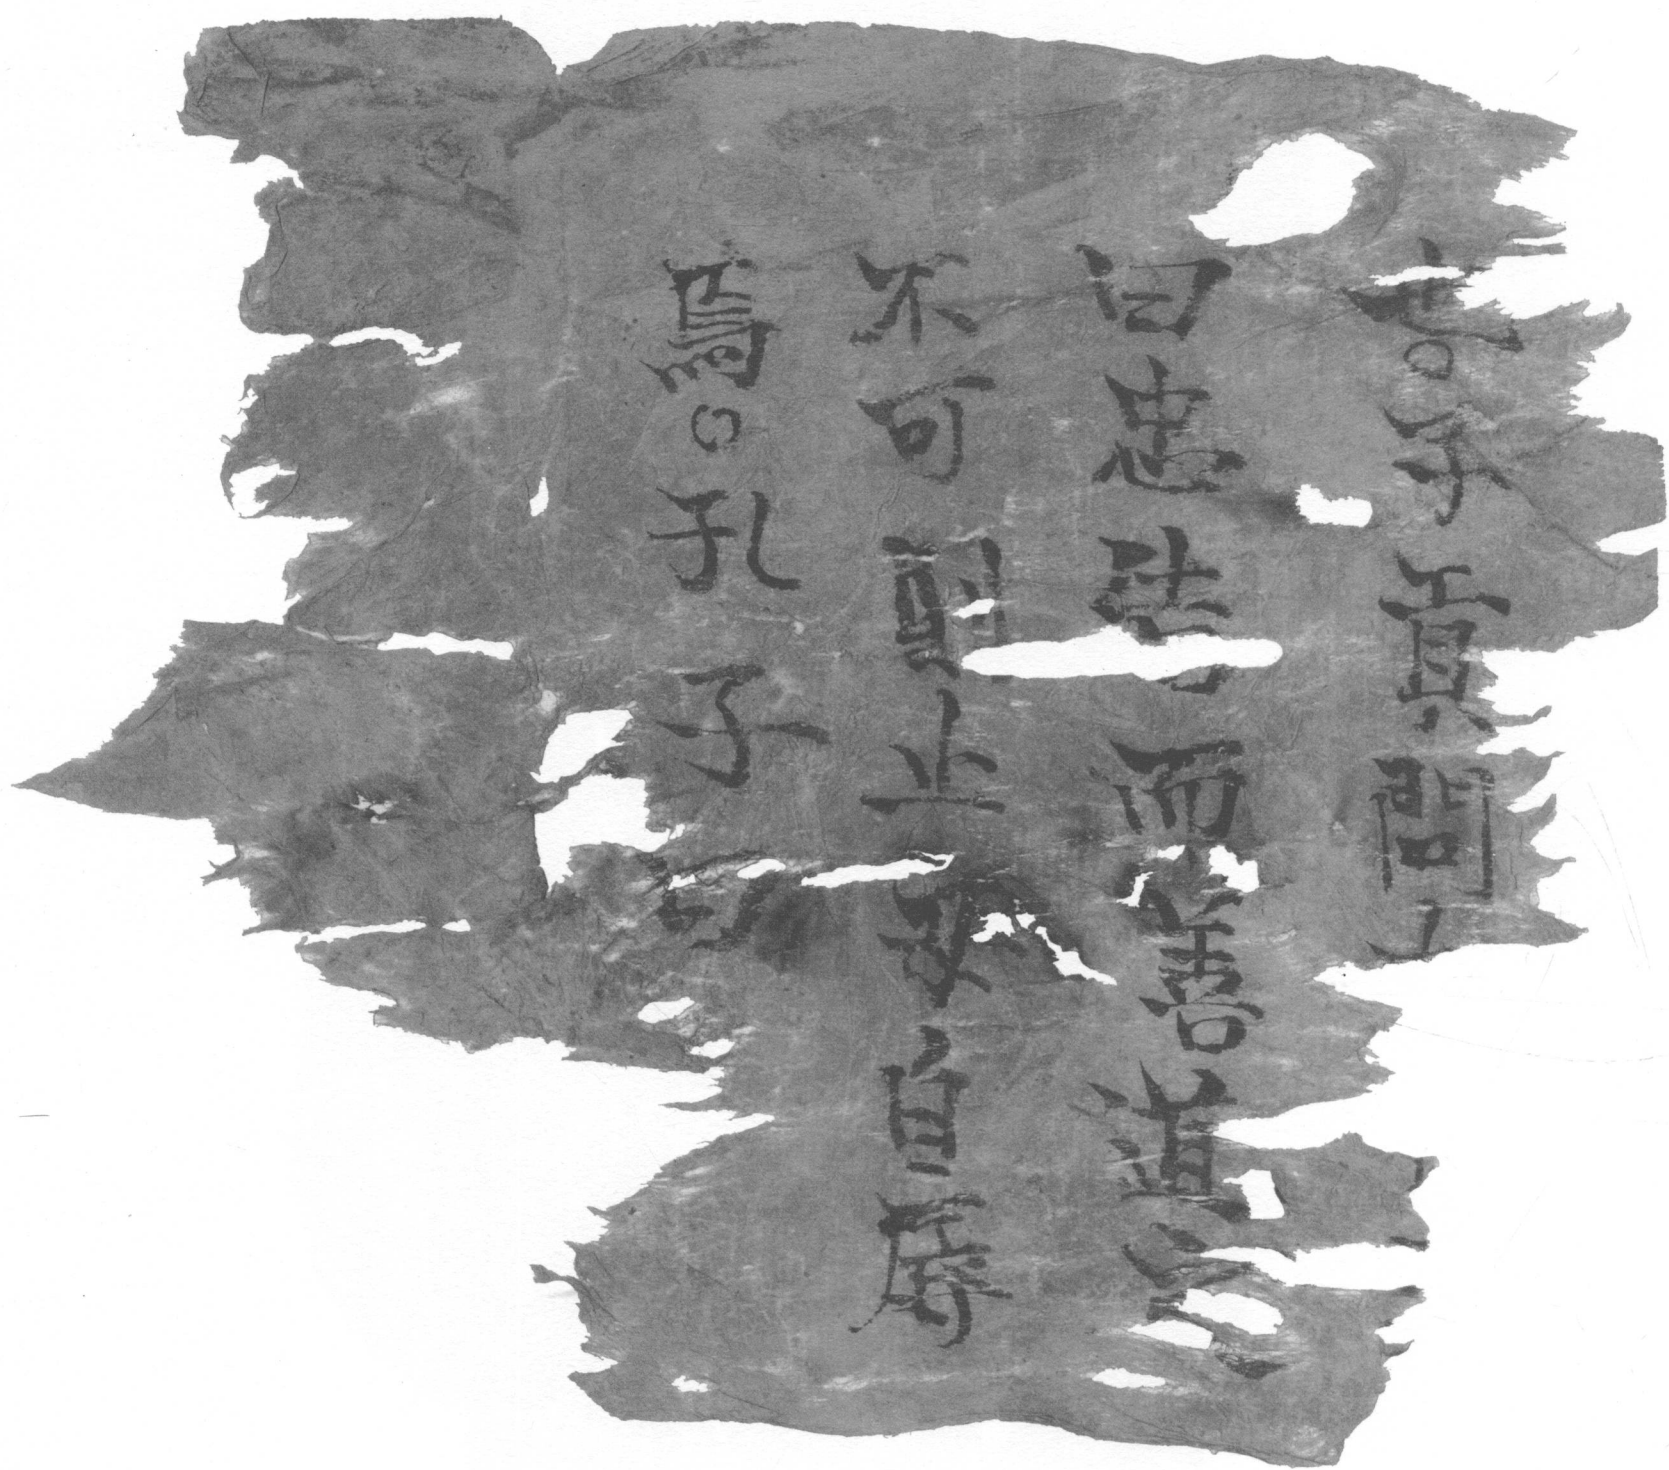 ○子貢問
曰忠告而善道之
不可則止毋自辱
焉○孔子曰